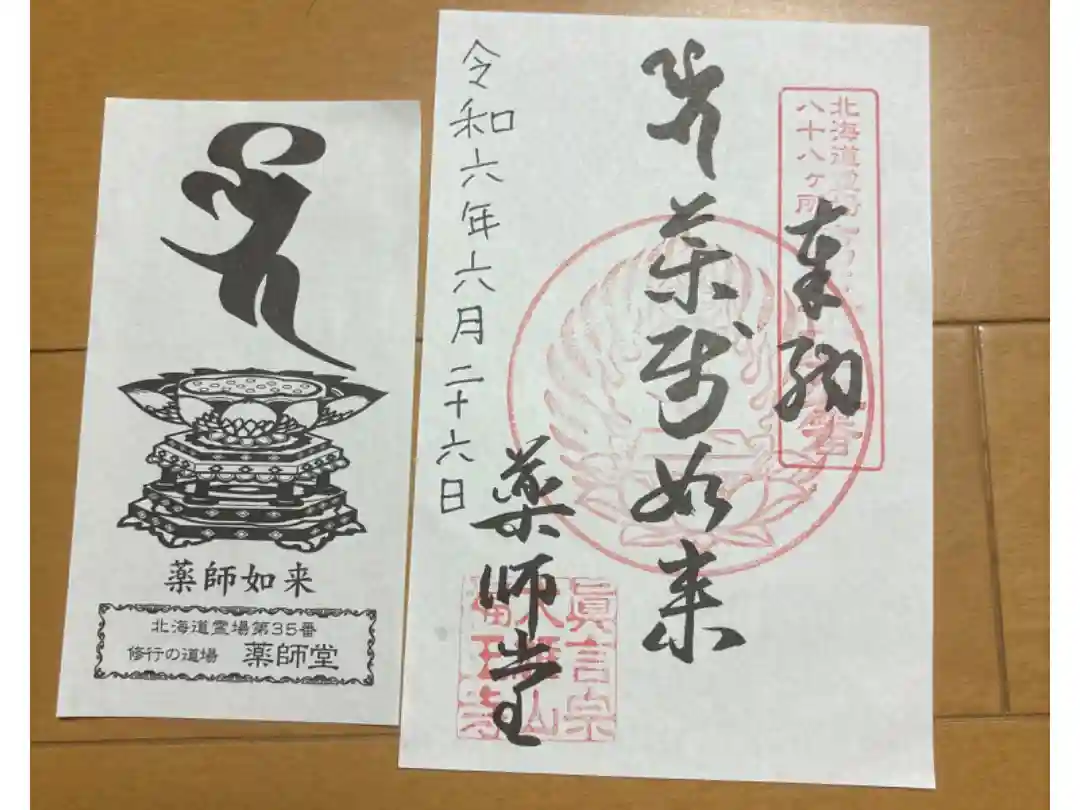 薬師如来
北海道霊場第35番
修行の道場 薬師堂
北海道霊場
八十八ヶ所
奉納
薬師如来
薬師堂
令和六年六月二十六日
眞言宗